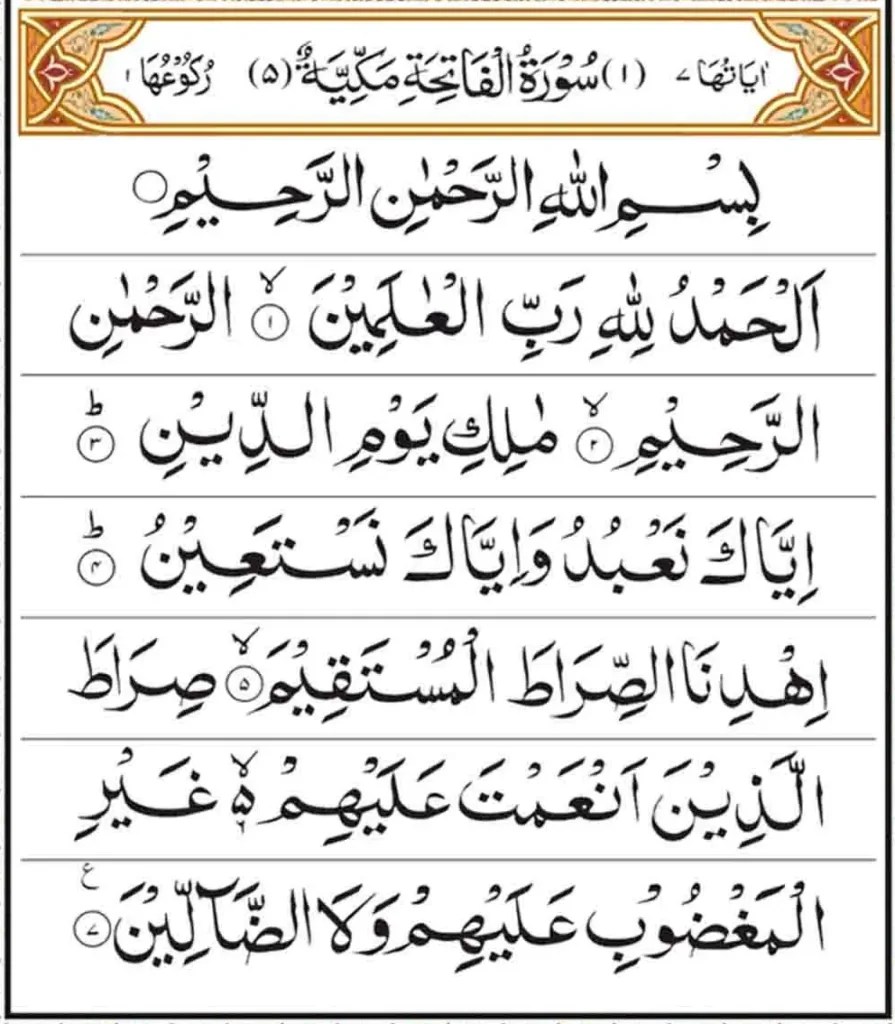 اٰيَاتُهَا ٧ (١) سُوْرَةُ الْفَاتِحَةِ مَكِّيَّةٌ (٥) رُكُوْعُهَا ١
بِسْمِ اللّٰهِ الرَّحْمٰنِ الرَّحِيْمِ ○
اَلْحَمْدُ لِلّٰهِ رَبِّ الْعٰلَمِيْنَ ۙ ﴿١﴾ الرَّحْمٰنِ
الرَّحِيْمِ ۙ ﴿٢﴾ مٰلِكِ يَوْمِ الدِّيْنِ ؕ ﴿٣﴾
اِيَّاكَ نَعْبُدُ وَاِيَّاكَ نَسْتَعِيْنُ ؕ ﴿٤﴾
اِهْدِنَا الصِّرَاطَ الْمُسْتَقِيْمَ ۙ ﴿٥﴾ صِرَاطَ
الَّذِيْنَ اَنْعَمْتَ عَلَيْهِمْ ۙ۵ غَيْرِ
الْمَغْضُوْبِ عَلَيْهِمْ وَلَا الضَّآلِّيْنَ ﴿٧﴾ ع